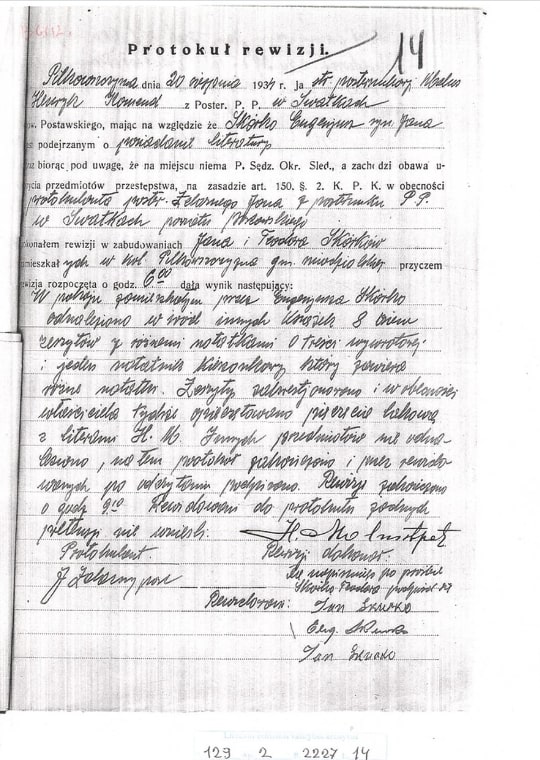 14
Protokuł rewizji.
dnia 20 sierpnia 1934 r. Ja st. posterunkowy
Henryk z Poster. P. P. w Swatkach
ow. Postawskiego, mając na względzie że Skórko Eugenjusz syn Jana
podejrzanym o posiadanie literatury
biorąc pod uwagę, że na miejscu niema P. Sędz. Okr. Śled., a zachodzi obawa u-
życia przedmiotów przestępstwa, na zasadzie art. 150. §. 2. K. P. K. w obecności
protokulanta postr. Żelaznego Jana z posterunku P.P.
w Swatkach powiatu
konałem rewizji w zabudowaniach Jana i Teodora Skórków
mieszkałych w kol. gm. miadziolskiej przyczem
ewizja rozpoczęta o godz. 6 00 dała wynik następujący:
W pokoju zamieszkałym przez Eugenjusza Skórko
odnaleziono w śród innych książek 8 osiem
zeszytów z różnemi notatkami o treści wywrotowej
i jeden notatnik kieszonkowy który zawiera
różne notatki. Zeszyty zakwestjonowano i w obecności
właściciela tychże opieczętowano pieczęcią lakową
z literami H. M. Innych przedmiotów nie odna-
leziono, na tem protokół zakończono i przez rewido-
wanych po odczytaniu podpisano. Rewizję zakończono
o godz 9 00 Rewidowani do protokułu żadnych
pretensji nie wnieśli.
Protokulant. Rewizji dokonał
J Żelazny post
Rewidowani: Jan
Eug.
Jan
129 2 2227 14